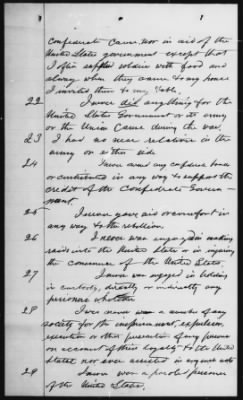 Confederate cause, nor in aid of the
United States government except that
I often supplied soldiers with food and
always when they came to my house
I invited them to my table.
22 I never did anything for the
United States Government or its army
or the Union Cause during the war.
23 I had no near relatives in the
army on either side
24 I never owned any confederate bonds
or contributed in any way to support the
credit of the Confederate Govern-
ment.
25 I never gave aid or comfort in
any way to the rebellion.
26 I never was engaged in making
raids into the United States or in injuring
the commerce of the United States.
27 I never was engaged in holding
in custody, directly or indirectly any
persons whatever
28 I never was a member of any
society for the imprisonment, expulsion,
execution or other persecution of any person
on account of their loyalty to the United
States, nor ever assisted in any such acts
29 I never was a paroled prisoner
of the United States.